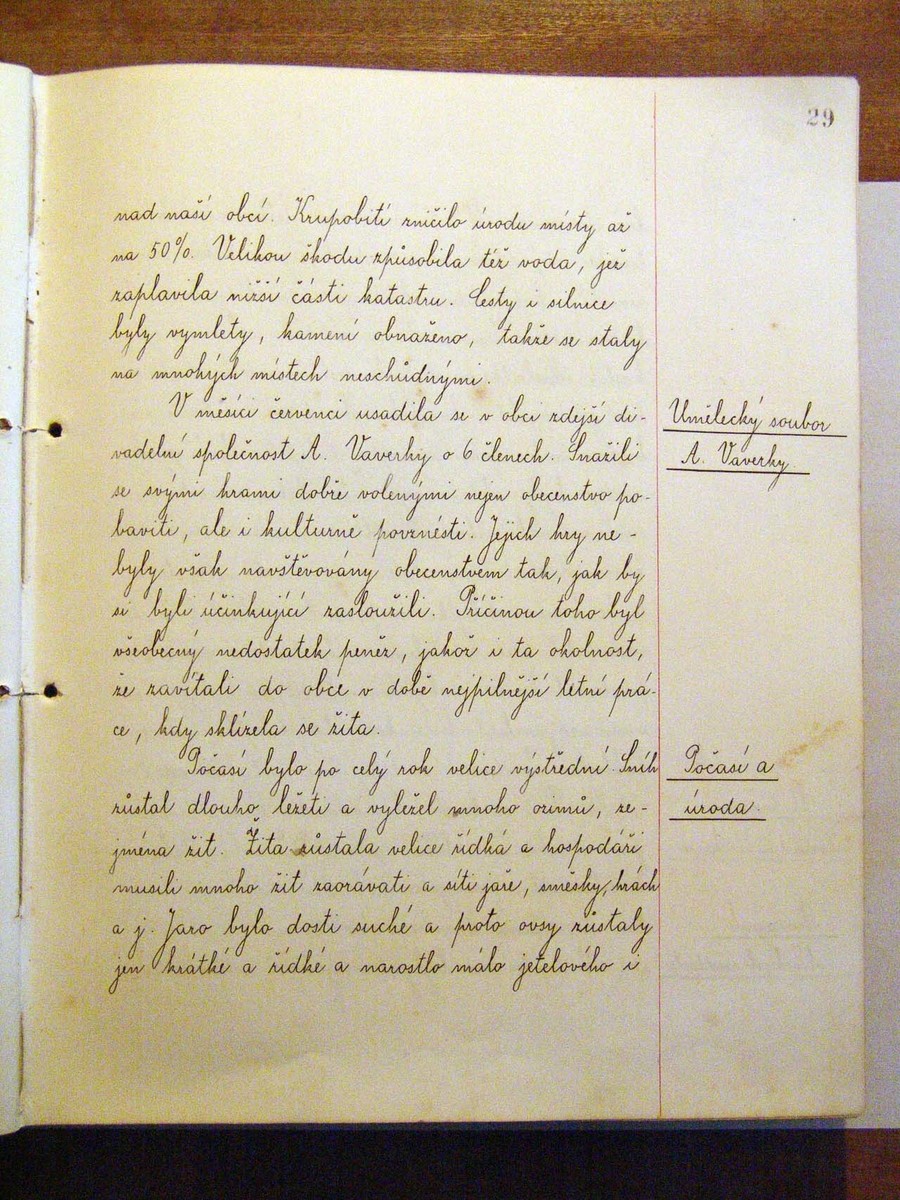 29
nad naší obcí. Krupobití zničilo úrodu místy až
na 50%. Velikou škodu způsobila též voda, jež
zaplavila nižší části katastru. Cesty i silnice
byly vymlety, kamení obnaženo, takže se staly
na mnohých místech neschůdnými.
V měsíci červenci usadila se v obci zdejší di-
vadelní společnost A. Vaverky o 6 členech. Snažili
se svými hrami dobře volenými nejen obecenstvo po-
baviti, ale i kulturně povznésti. Jejich hry ne-
byly však navštěvovány obecenstvem tak, jak by
si byli účinkující zasloužili. Příčinou toho byl
všeobecný nedostatek peněz, jakož i ta okolnost,
že zavítali do obce v době nejpilnější letní prá-
ce, kdy sklízela se žita.
Umělecký soubor
A. Vaverky.
Počasí bylo po celý rok velice výstřední. Sníh
zůstal dlouho ležeti a vyležel mnoho ozimů, ze-
jména žit. Žita zůstala velice řídká a hospodáři
musili mnoho žit zaorávati a síti jaře, směsky, hrách
a j. Jaro bylo dosti suché a proto ovsy zůstaly
jen krátké a řídké a narostlo málo jetelového i
Počasí a
úroda.